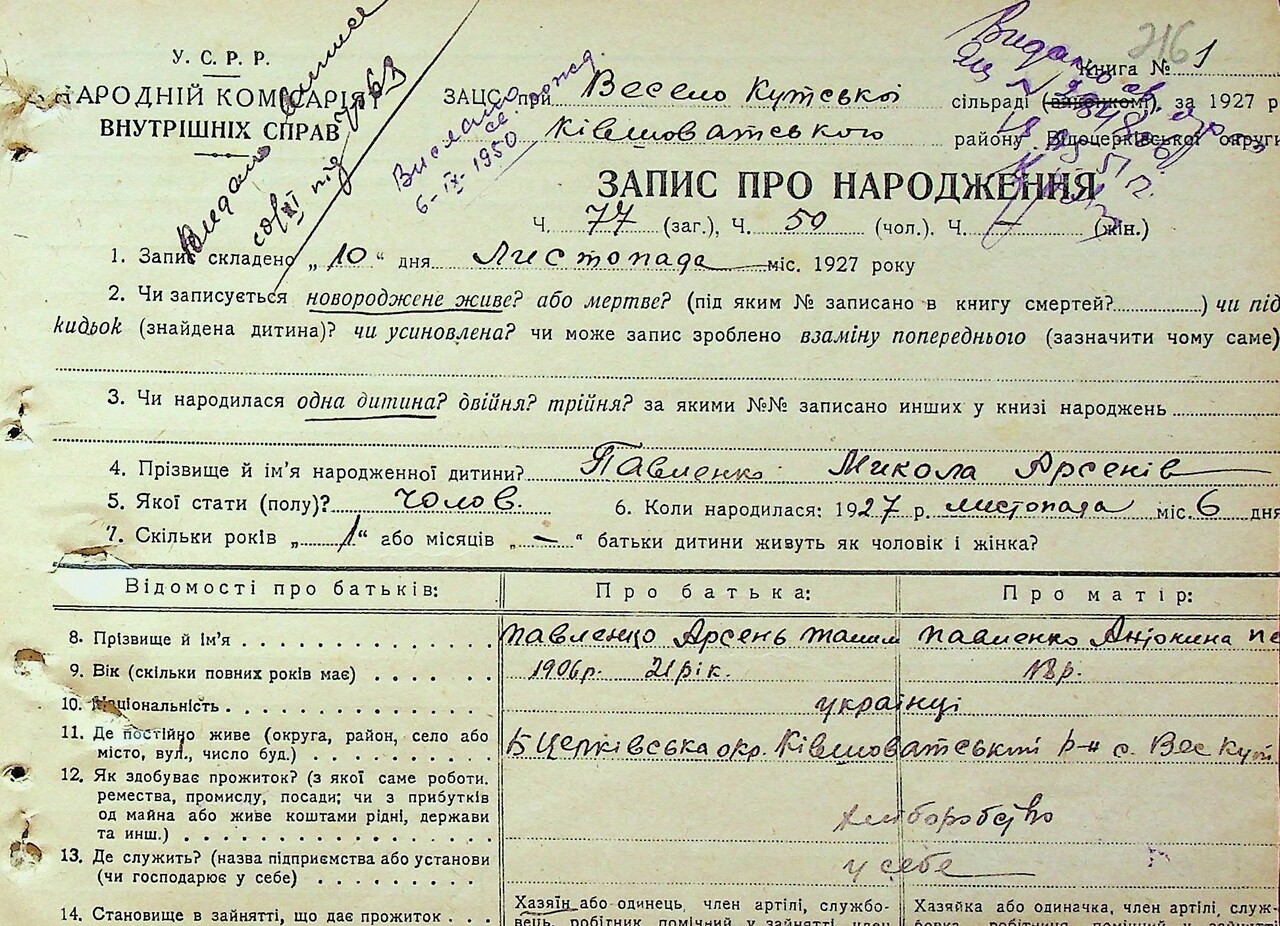 У. С. Р. Р.
НАРОДНІЙ КОМІСАРІЯТ
ВНУТРІШНІХ СПРАВ
Видано
Вислано
св. рожд
6-IX-1950
216
Книга № 1
ЗАЦС при Весело Кутської сільраді (виконкомі), за 1927 р
Ківшоватського району Білоцерківської округи
ЗАПИС ПРО НАРОДЖЕННЯ
Ч. 77 (заг.), Ч. 50 (чол.). Ч. — (жін.)
1. Запис складено „ 10 “ дня Листопада міс. 1927 року
2. Чи записується новороджене живе? або мертве? (під яким № записано в книгу смертей?) чи під
кидьок (знайдена дитина)? чи усиновлена? чи може запис зроблено взаміну попереднього (зазначити чому саме)
3. Чи народилася одна дитина? двійня? трійня? за якими №№ записано инших у книзі народжень
4. Прізвище й ім'я народженної дитини? Павленко Микола Арсенів
5. Якої стати (полу)? чолов. 6. Коли народилася: 1927 р. листопада міс. 6 дня
7. Скільки років „ 1 “ або місяців „ — “ батьки дитини живуть як чоловік і жінка?
Відомості про батьків: Про батька: Про матір:
8. Прізвище й ім'я Павленко Арсень Павленко Антонина
9. Вік (скільки повних років має) 1906 р. 21 рік. 18 р.
10. Національність українці
11. Де постійно живе (округа, район, село або
місто, вул., число буд.) Б Церківська окр. Ківшоватський р-н с. Вес Кут
12. Як здобуває прожиток? (з якої саме роботи.
ремества, промислу, посади; чи з прибутків
од майна або живе коштами рідні, держави
та инш.) хліборобство
13. Де служить? (назва підприємства або установи
(чи господарює у себе) у себе
14. Становище в зайнятті, що дає прожиток
Хазяїн або одинець, член артілі, службо-
вець, робітник помічний у зайнятті член
Хазяйка або одиначка, член артілі, служ-
бовка, робітниця помічний у зайнятті